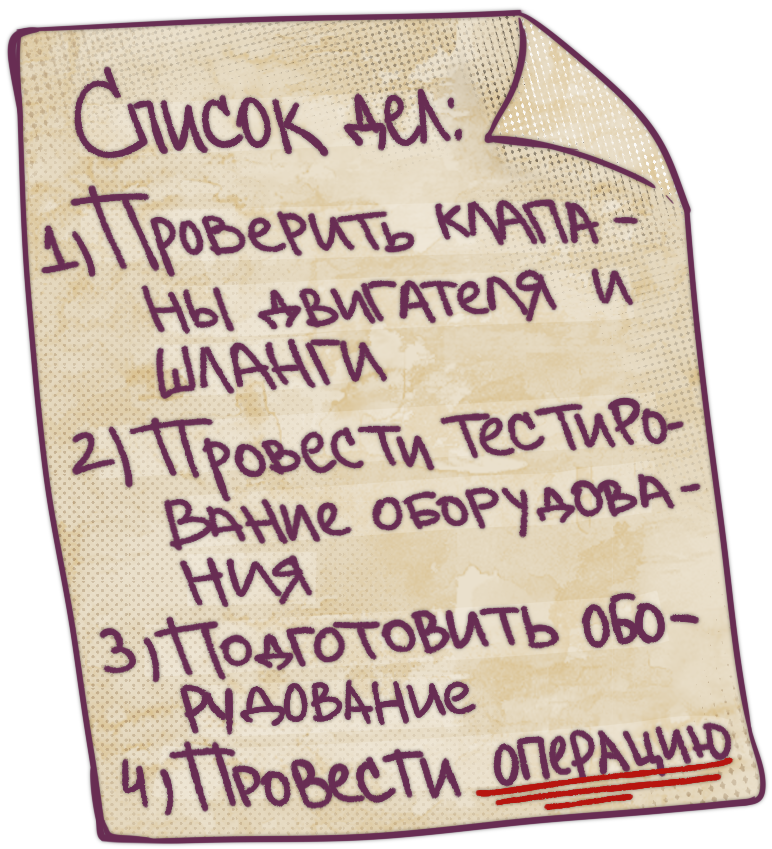 Список дел:
1) Проверить клапа-
ны двигателя и
шланги
2) Провести тестиро-
вание оборудова-
ния
3) Подготовить обо-
рудование
4) Провести операцию